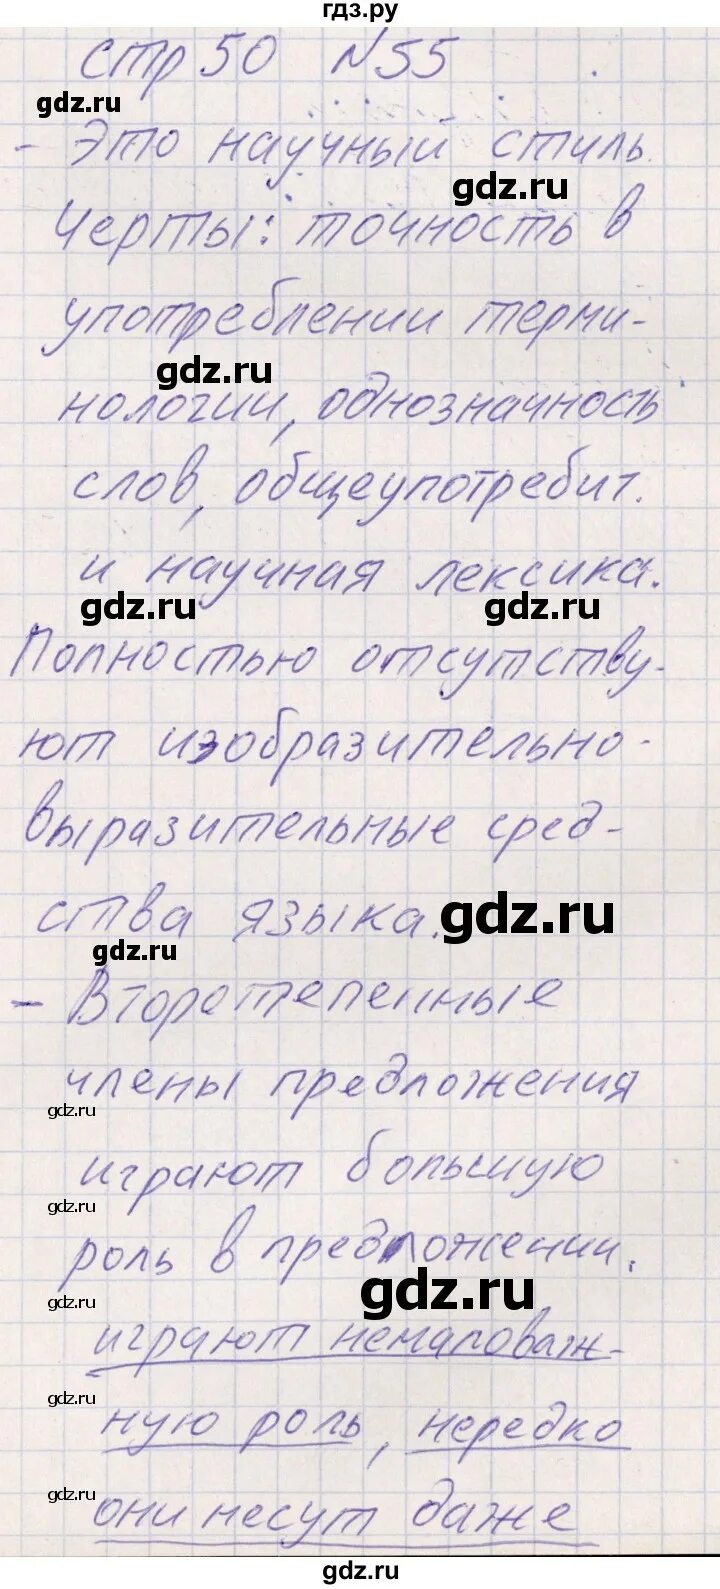 гдз.ру
стр 50 №55
gdz.ru
- Это научный стиль.
gdz.ru
Черты: точность в
употреблении терми-
gdz.ru
нологии, однозначность
слов, общеупотребит.
и научная лексика.
gdz.ru gdz.ru
Полностью отсутству-
ют изобразительно-
выразительные сред-
ства языка.
gdz.ru
gdz.ru
- Вторетепенные
члены предложения
gdz.ru
играют большую
gdz.ru
роль в предложении.
gdz.ru
gdz.ru
играют немаловаж-
gdz.ru
ную роль, нередко
gdz.ru
они несут даже
gdz.ru